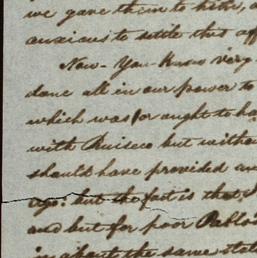 we gave them to him, a
anxious to settle this aff
Now - You Know very
done all in our power to
which was for aught to ha
with Ruiseco but witho
should have provided an
ago: but the fact is that I
and but for poor Pablo
in about the same stat